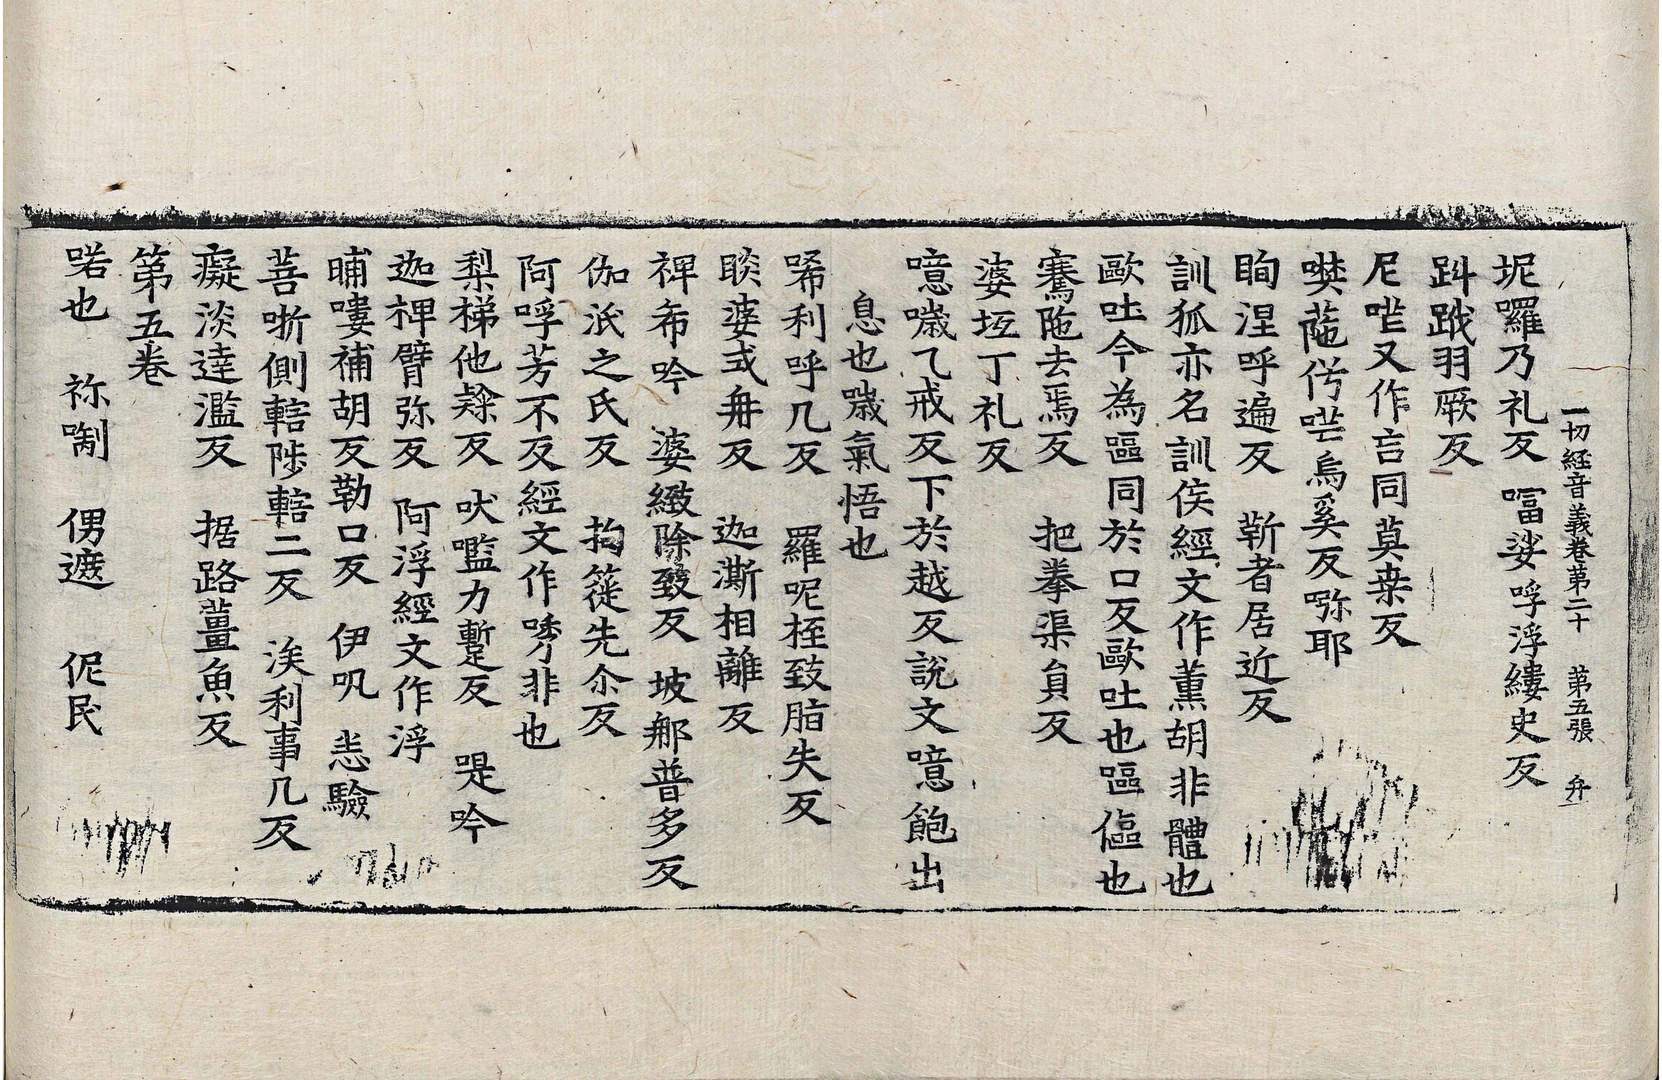 坭囉乃礼反 㗶娑 呼浮縷史反
一切經音義卷第二十 第五張 弁
㪷跋羽厥反
尼吐又作言同莫桒反
㗛蓙 烏奚反㘁耶
眴涅呼遍反 靳者居近反
訓狐亦名訓侯經文作薰胡非體也
歐吐今為區同於口反歐吐也區傴也
騫陁去焉反 把拳渠員反
婆坘丁礼反
噫噦乙戒反下於越反說文噫飽出
息也噦氣悟也
唏利呼几反 羅呢桎致脂失反
睒婆式冄反 迦澌相離反
裨布吟 婆緻除致反 坡那普多反
伽汦之氏反 拘簁先尒反
阿呼芳不反經文作㗀非也
梨梯他𨽻反 吠㘕力蹔反 㖷吟
迦裨臂弥反 阿浮經文作浮
晡嘍補胡反勒口反 伊㕧 恙驗
菩㗭側轄陟轄二反 涘利事几反
癡淡達濫反 据路薑魚反
第五卷
喏也 祢㘄 㑚遮 伲民